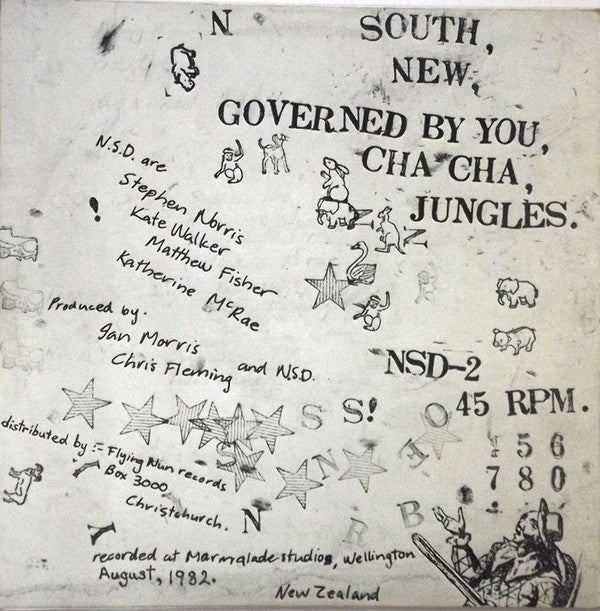 N
SOUTH,
NEW,
GOVERNED BY YOU,
CHA CHA,
JUNGLES.
N.S.D. are
Stephen Norris
Kate Walker
Matthew Fisher
Katherine McRae
!
N
N
Produced by.
Ian Morris
Chris Fleming
and N.S.D.
NSD-2
45 RPM.
S S! F O
5 6
7 8 0
S N E
distributed by :- Flying Nun records
Box 3000
Christchurch.
N R B
recorded at Marmalade studios, Wellington
August, 1982.
New Zealand